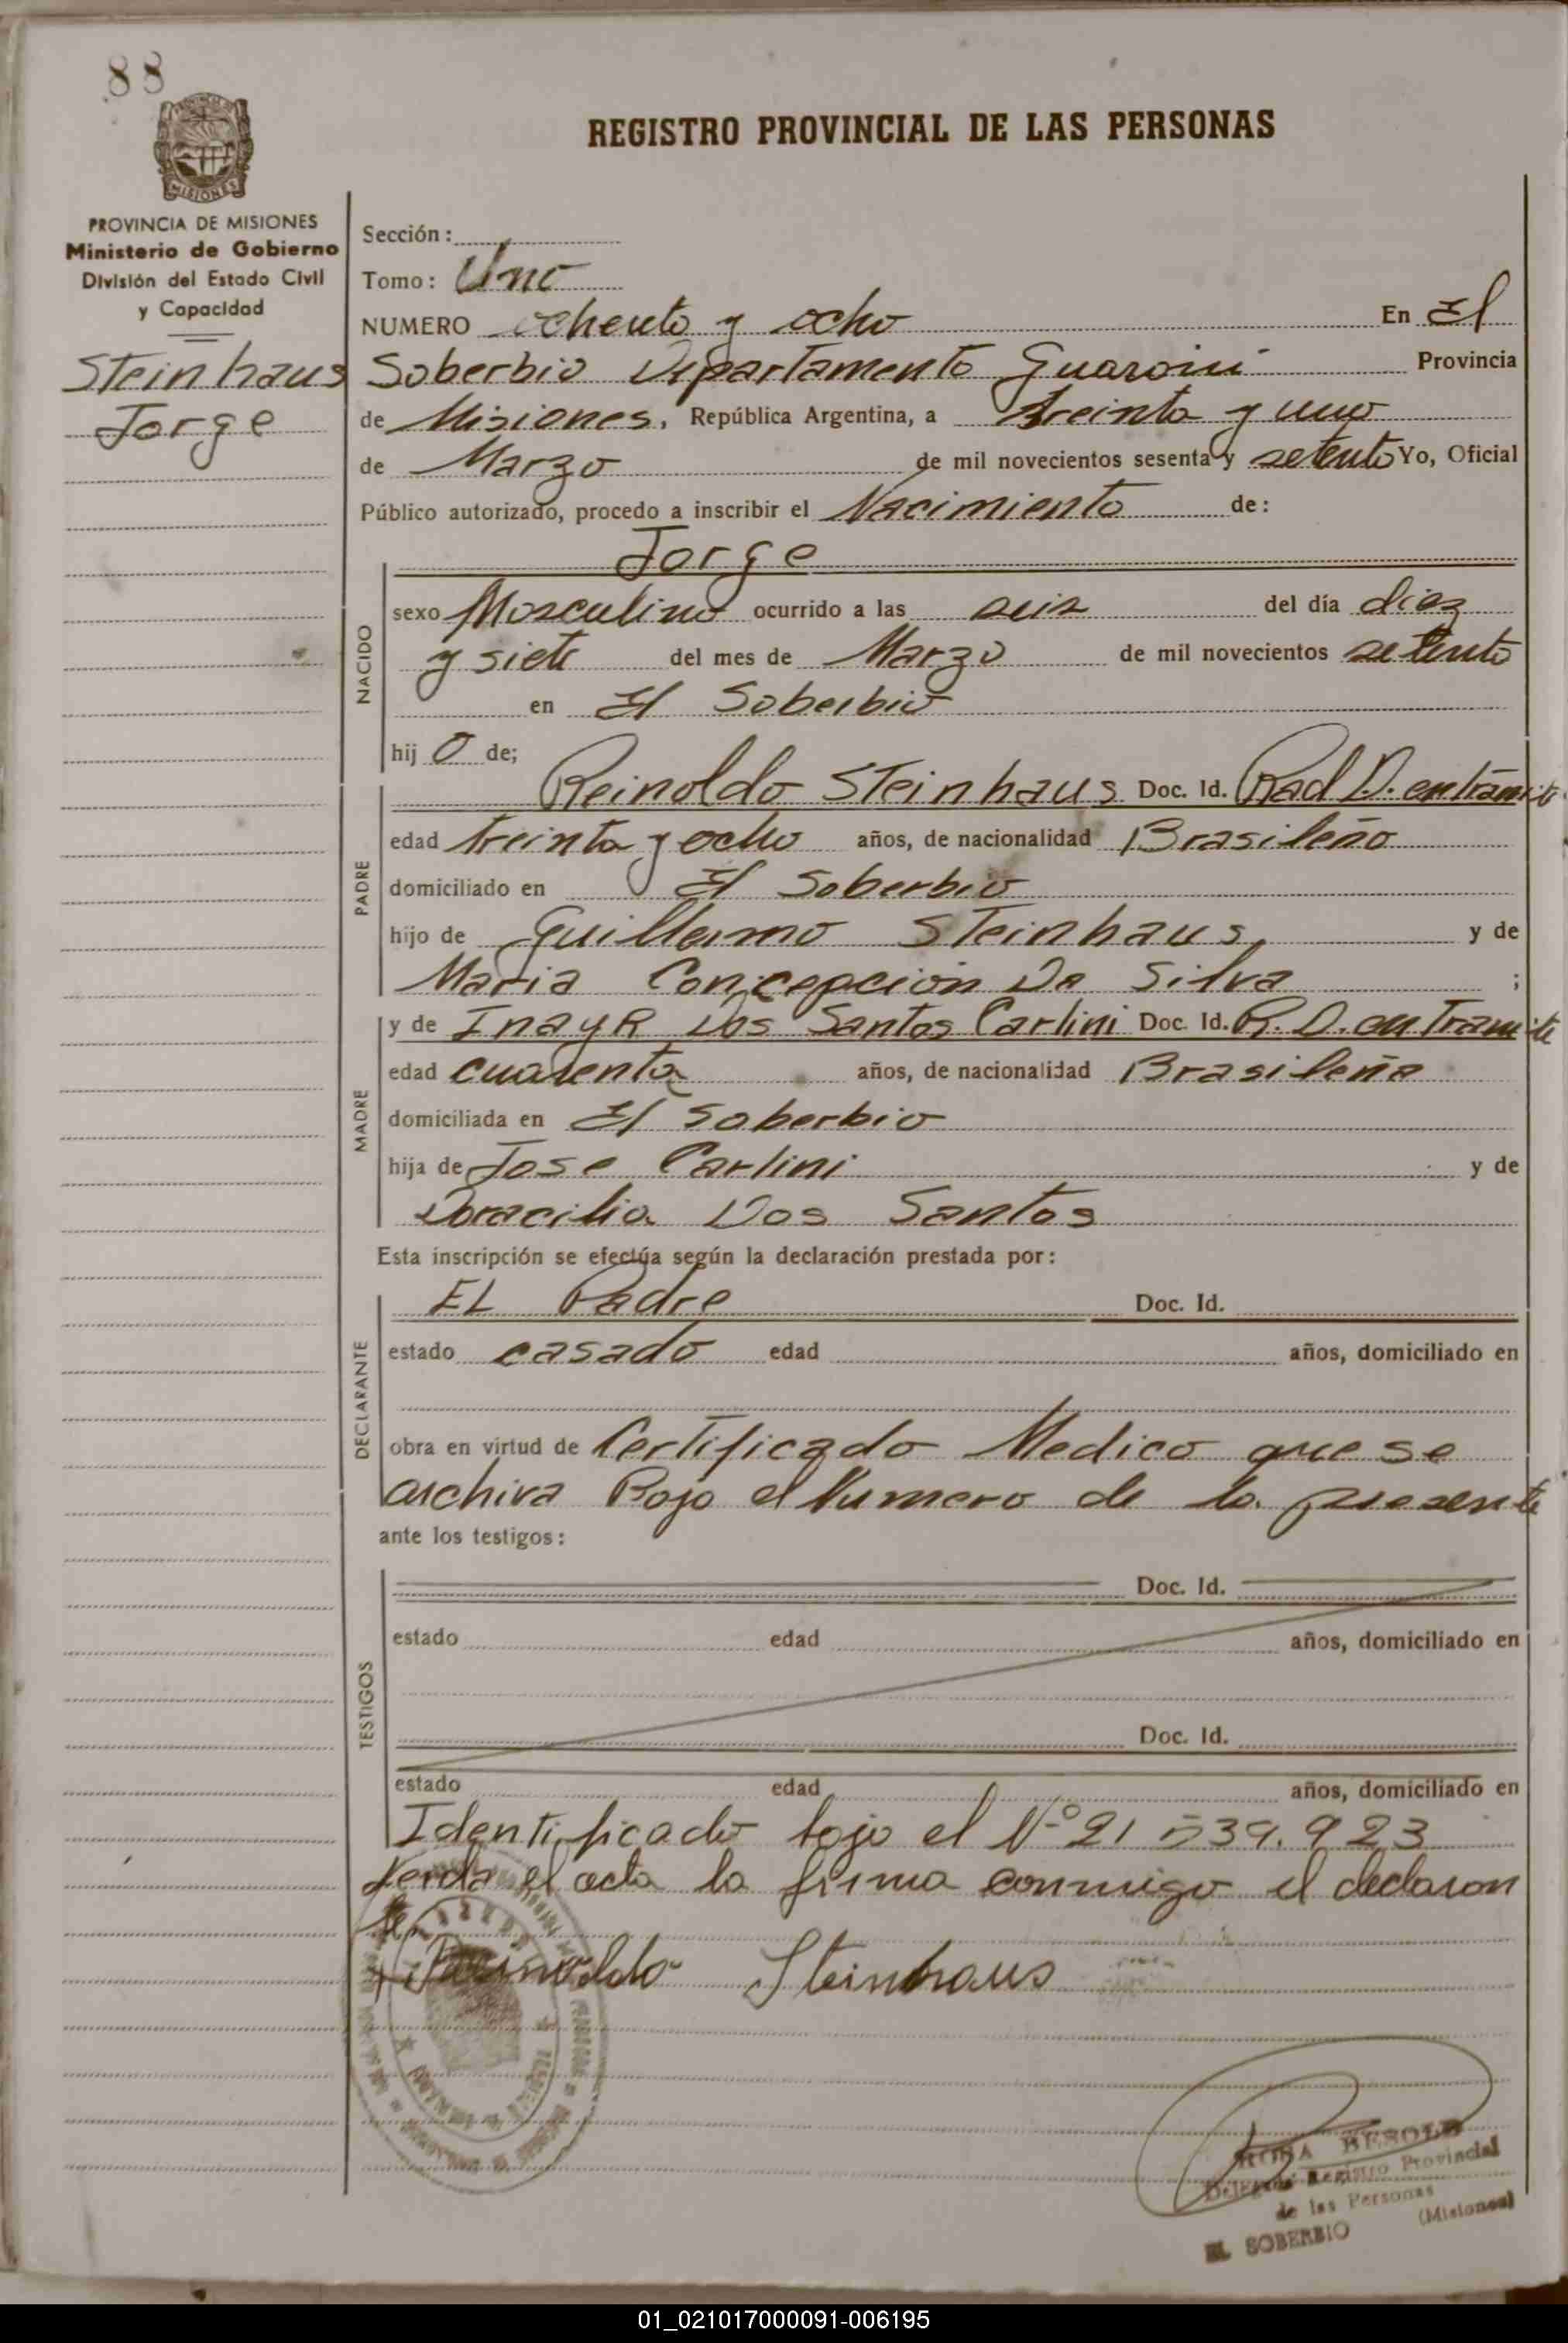 88
REGISTRO PROVINCIAL DE LAS PERSONAS
MISIONES
PROVINCIA DE MISIONES
Ministerio de Gobierno
División del Estado Civil
y Capacidad
Steinhaus
Jorge
Sección:
Tomo: Uno
NUMERO ochenta y ocho En El
Soberbio Departamento Guarani Provincia
de Misiones, República Argentina, a treinta y uno
de Marzo de mil novecientos sesenta y setenta Yo, Oficial
Público autorizado, procedo a inscribir el Nacimiento de:
NACIDO
Jorge
sexo Masculino ocurrido a las seis del día diez
y siete del mes de Marzo de mil novecientos setenta
en El Soberbio
hij o de;
PADRE
Reinoldo Steinhaus Doc. Id. Rad D. en trámite
edad treinta y ocho años, de nacionalidad Brasileño
domiciliado en El Soberbio
hijo de Guillermo Steinhaus y de
Maria Concepcion Da Silva ;
MADRE
y de Inayr Dos Santos Carlini Doc. Id. R. D. en Tramite
edad cuarenta años, de nacionalidad Brasileña
domiciliada en El Soberbio
hija de Jose Carlini y de
Doracilia Dos Santos
Esta inscripción se efectúa según la declaración prestada por:
DECLARANTE
EL Padre Doc. Id.
estado casado edad años, domiciliado en
obra en virtud de Certificado Medico que se
archiva Bajo el Numero de la presente
ante los testigos:
TESTIGOS
Doc. Id.
estado edad años, domiciliado en
Doc. Id.
estado edad años, domiciliado en
Identificado bajo el Nº 21 539.923
Leida el acta la firma conmigo el declaran
te
Reinoldo Steinhaus
ROSA BESOLD
Delegada Registro Provincial
de las Personas
EL SOBERBIO (Misiones)
01_021017000091-006195